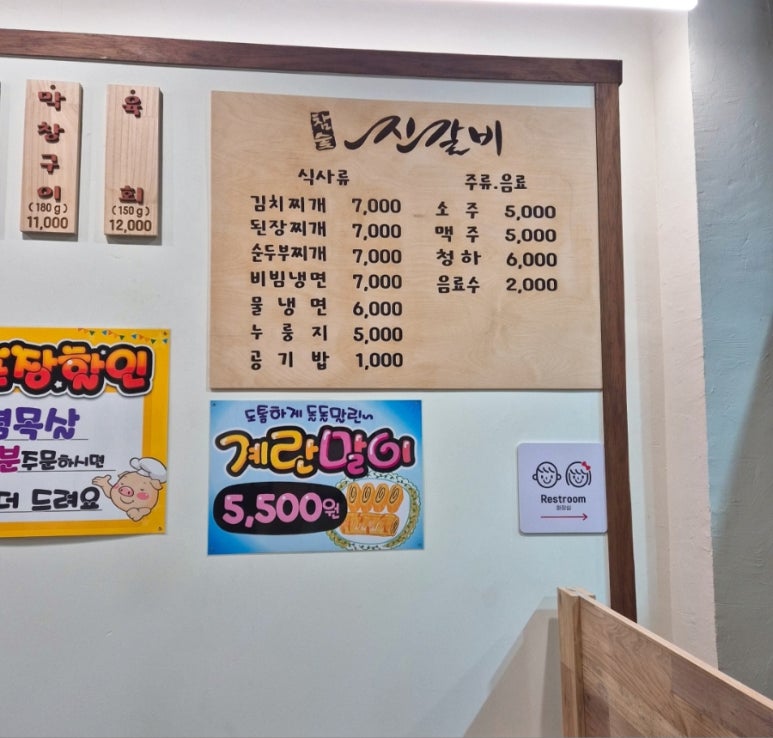 막창구이
(180 g)
11,000
육회
(150 g)
12,000
참숯 진갈비
식사류
김치찌개 7,000
된장찌개 7,000
순두부찌개 7,000
비빔냉면 7,000
물냉면 6,000
누룽지 5,000
공기밥 1,000
주류.음료
소주 5,000
맥주 5,000
청하 6,000
음료수 2,000
장할인
목살
분주문하시면
더 드려요
도톰하게 돌돌만린~
계란말이
5,500원
Restroom
화장실